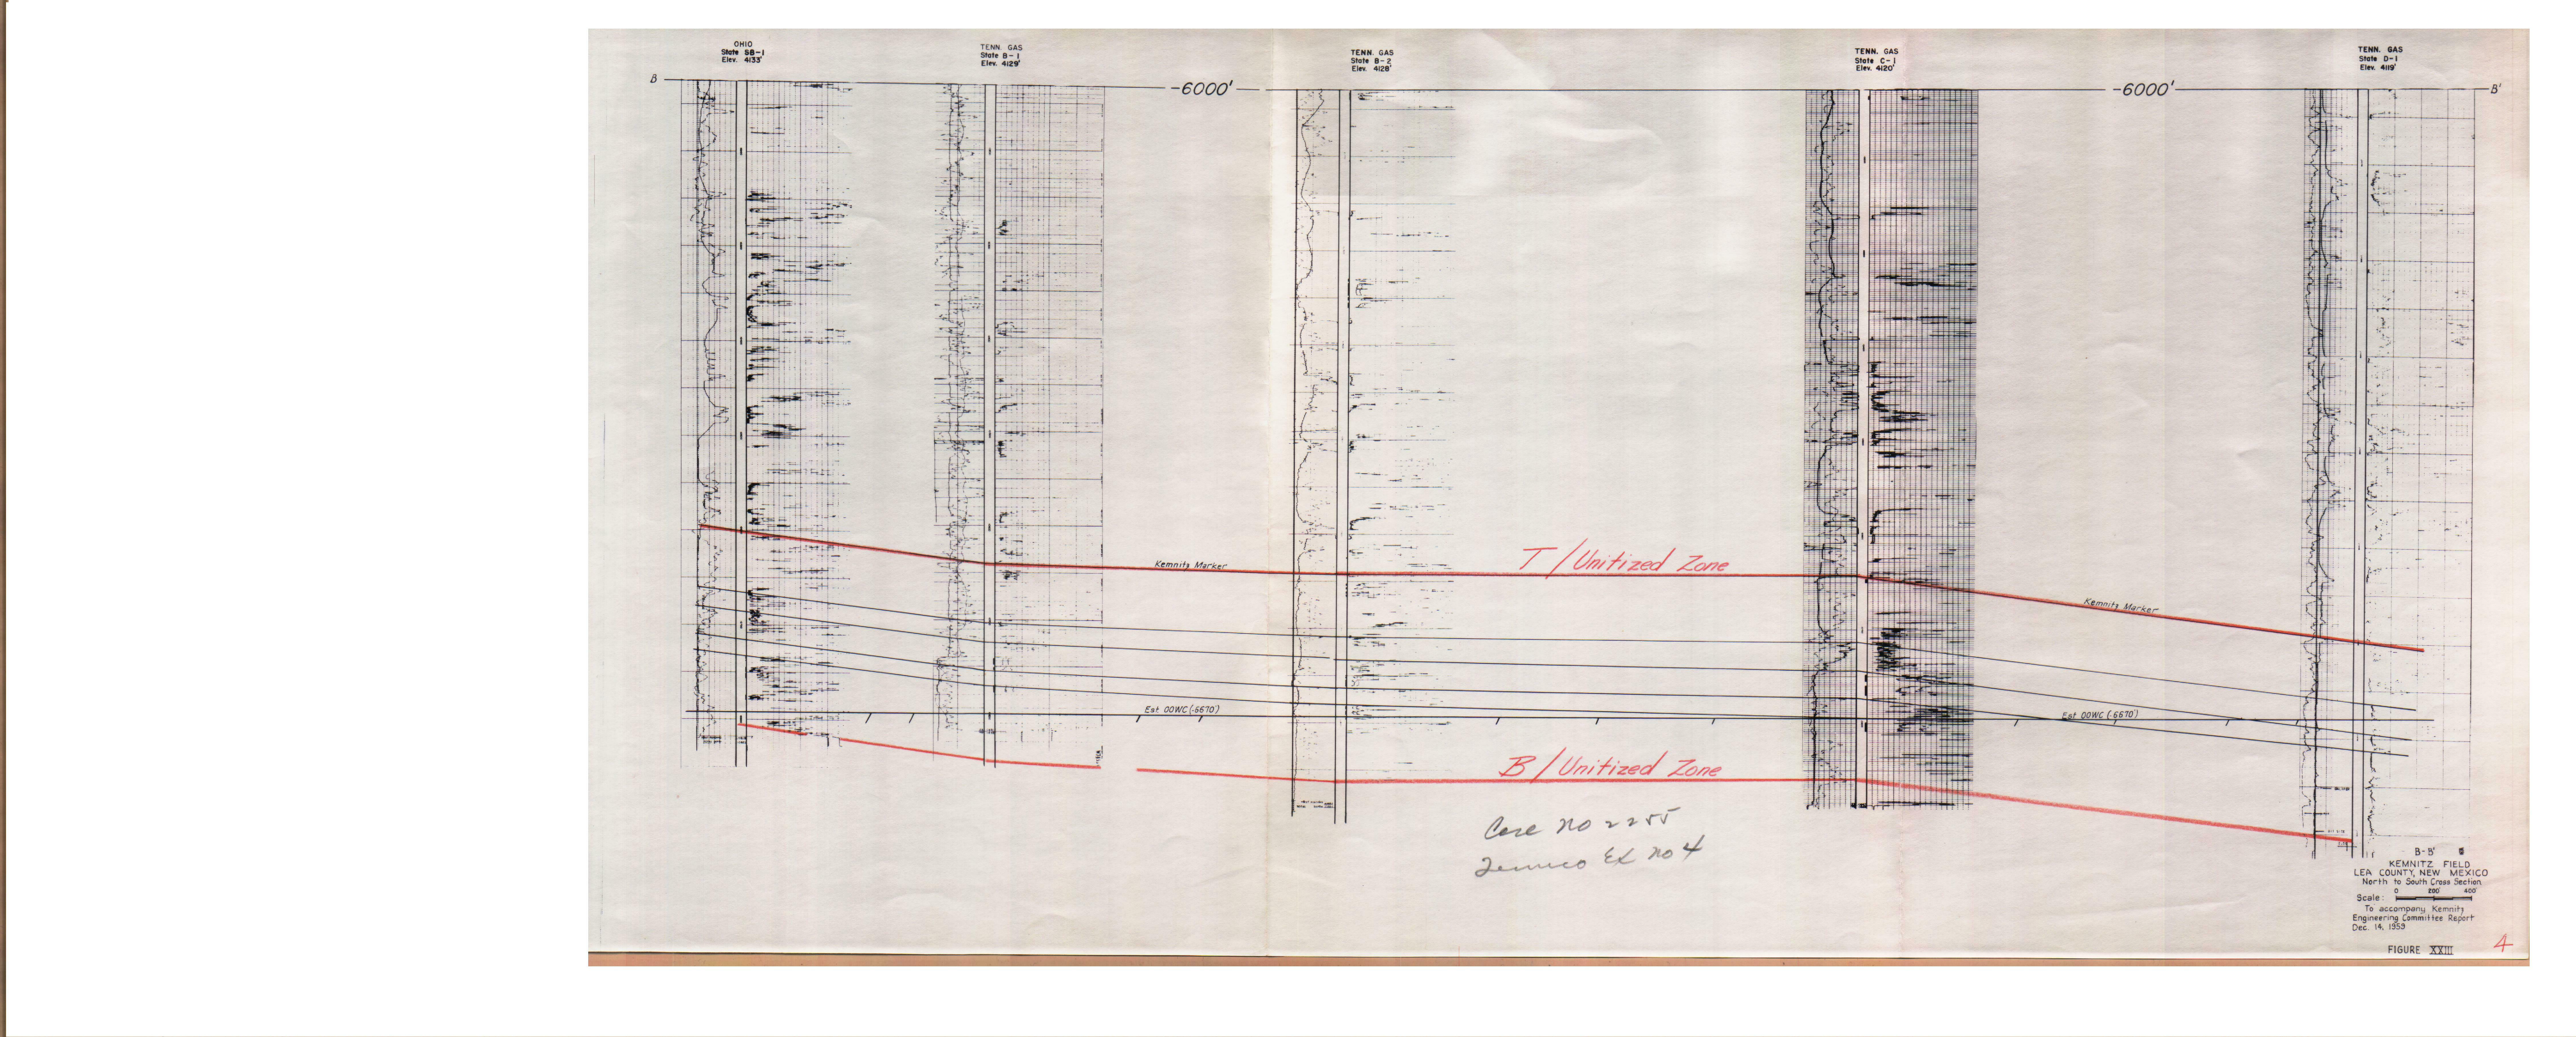 OHIO
State SB-1
Elev. 4133'
TENN. GAS
State B-1
Elev. 4129'
TENN. GAS
State B-2
Elev. 4128'
TENN. GAS
State C-1
Elev. 4120'
TENN. GAS
State D-1
Elev. 4119'
B
-6000'
-6000'
B'
Kemnitz Marker
T/Unitized Zone
Kemnitz Marker
Est OOWC (-6670')
Est OOWC (-6670')
B/Unitized Zone
Case no 2255
Tenneco Ex no 4
B-B'
KEMNITZ FIELD
LEA COUNTY, NEW MEXICO
North to South Cross Section
0 200' 400'
Scale:
To accompany Kemnitz
Engineering Committee Report
Dec. 14, 1959
FIGURE XXIII
4